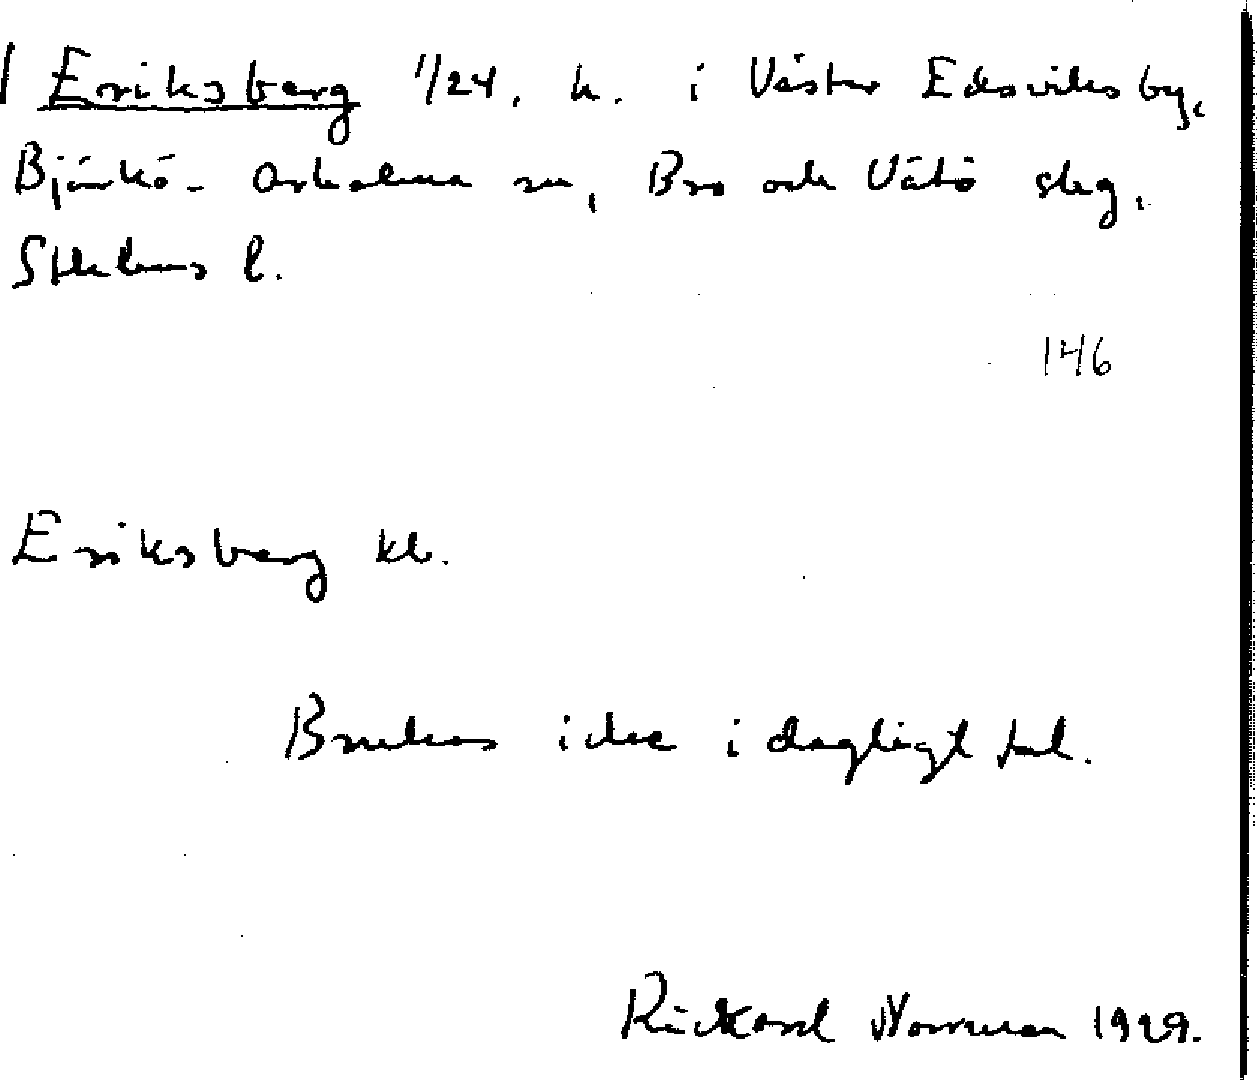 Eriksberg 1/24, h. i Väster Edsviks by,
Björkö-Arholma sn, Bro och Vätö skg,
Sthlms l.
146
Eriksberg kl.
Brukas icke i dagligt tal.
Rickard Norman 1929.